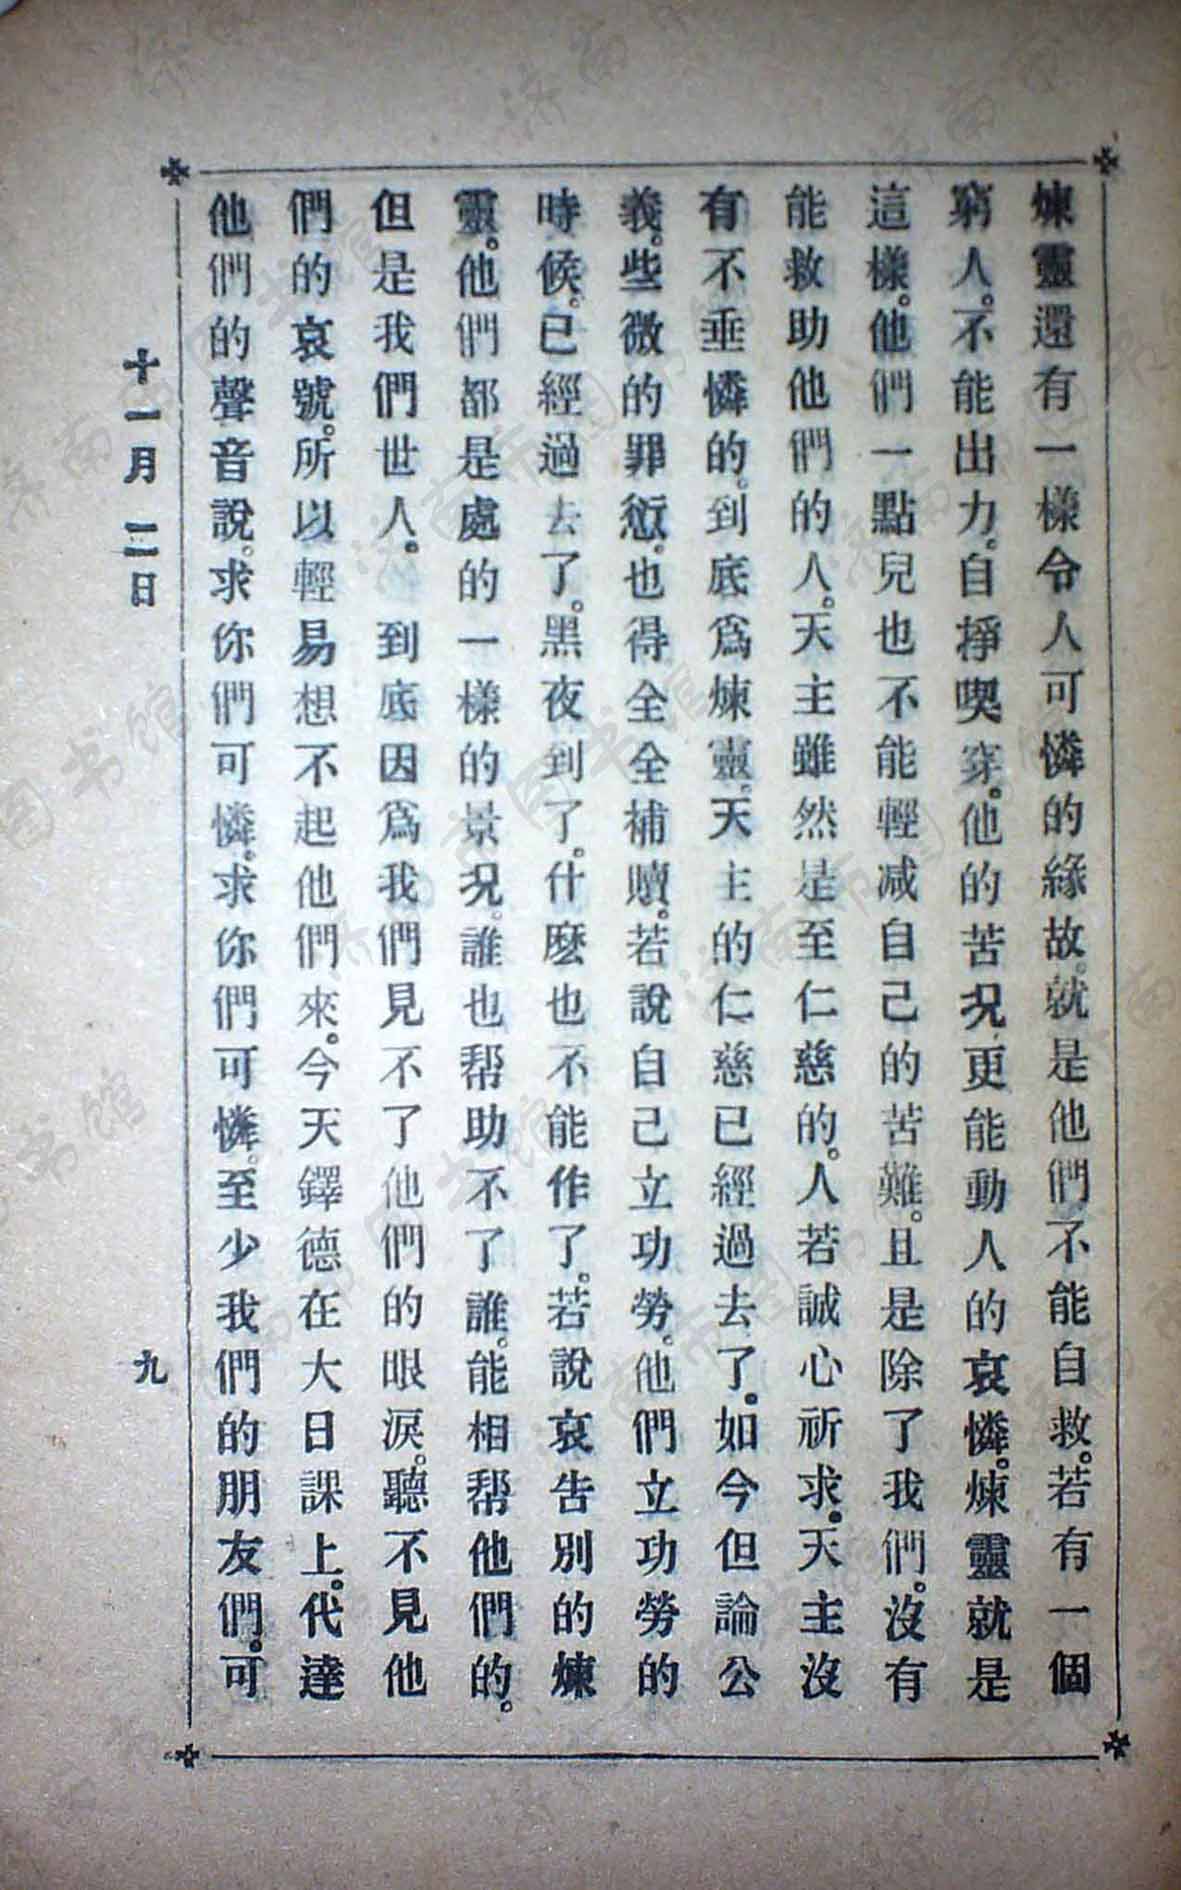 煉靈還有一樣令人可憐的緣故。就是他們不能自救。若有一個
窮人。不能出力。自掙喫穿。他的苦況更能動人的哀憐。煉靈就是
這樣。他們一點兒也不能輕減自己的苦難。且是除了我們。沒有
能救助他們的人。天主雖然是至仁慈的。人若誠心祈求。天主沒
有不垂憐的。到底爲煉靈。天主的仁慈已經過去了。如今但論公
義。些微的罪愆。也得全全補贖。若說自己立功勞。他們立功勞的
時候。已經過去了。黑夜到了。什麽也不能作了。若說哀告別的煉
靈。他們都是處的一樣的景況。誰也帮助不了誰。能相帮他們的。
但是我們世人。到底因爲我們見不了他們的眼淚。聽不見他
們的哀號。所以輕易想不起他們來。今天鐸德在大日課上。代達
他們的聲音說。求你們可憐。求你們可憐。至少我們的朋友們。可
十一月 二日 九
济南市图书馆